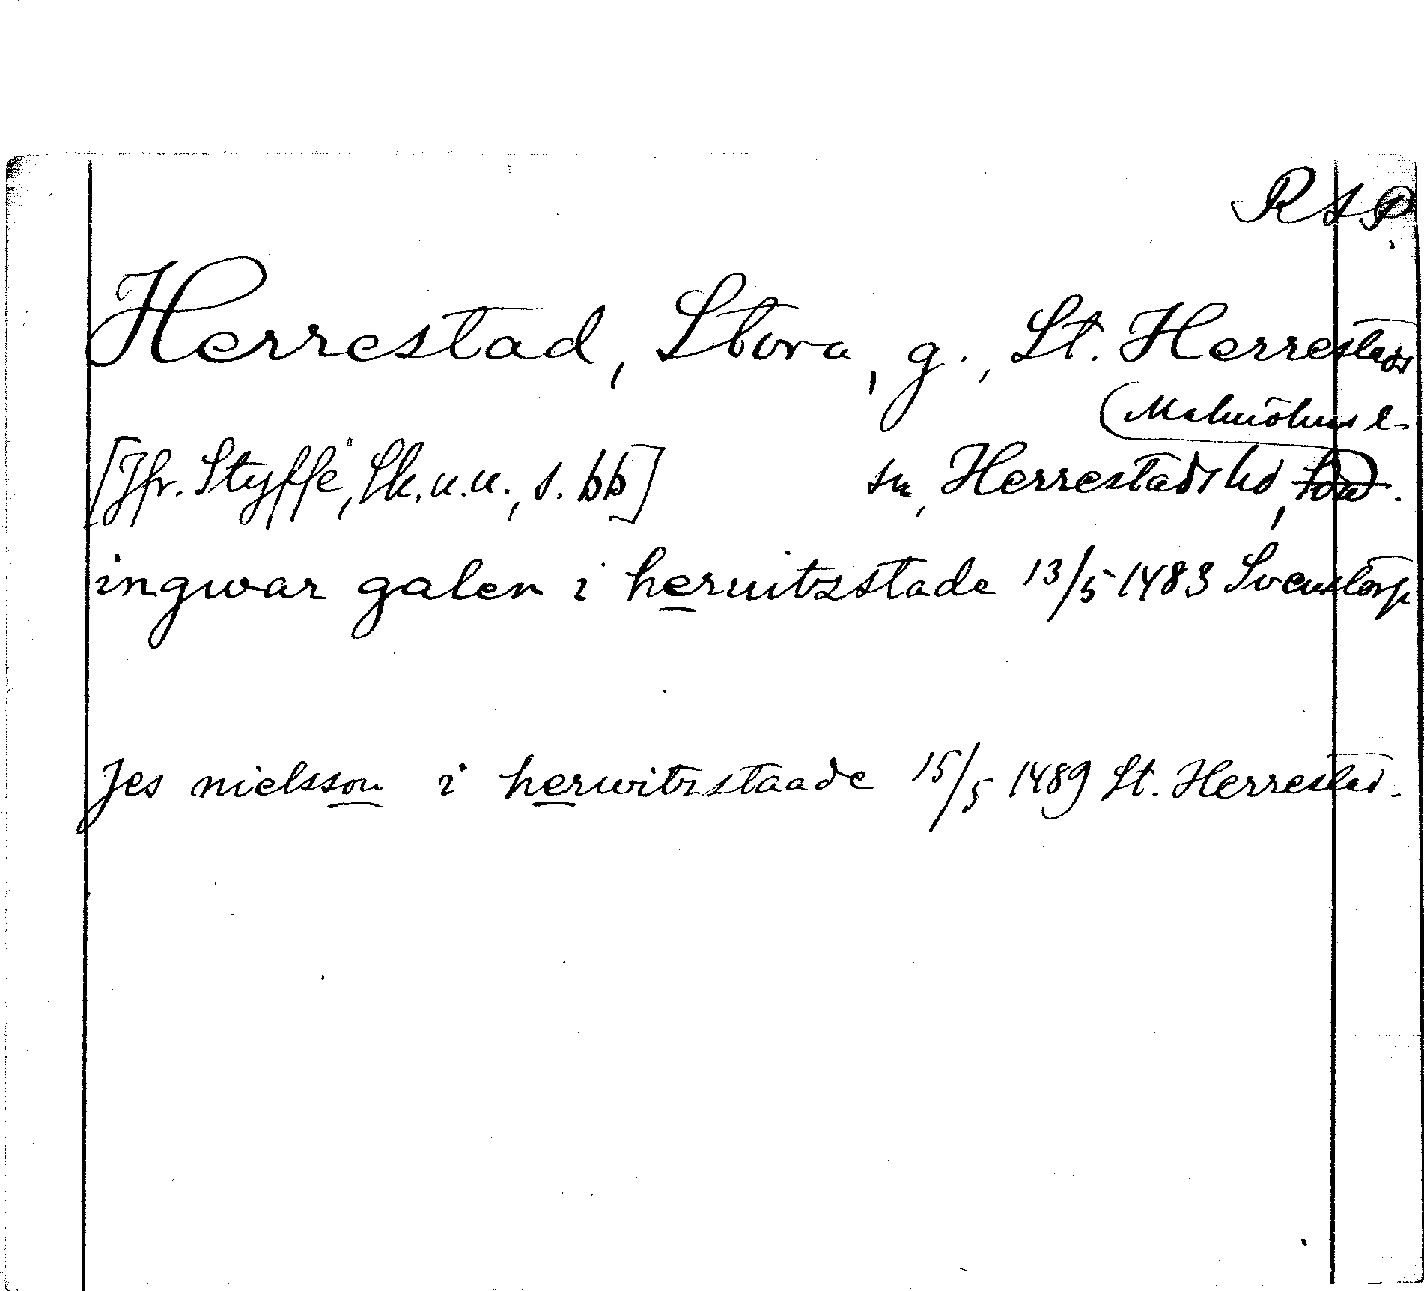 RAP.
Herrestad, Stora, g., St. Herrestads
(Malmöhus l.
[Jfr. Styffe, Sk.u.u., s. 66] sn, Herrestads hd,
ingwar galen i heruitzstade 13/5 1483 Svenstorp
Jes nielsson i herwitzstaade 15/5 1489 St. Herrestad.